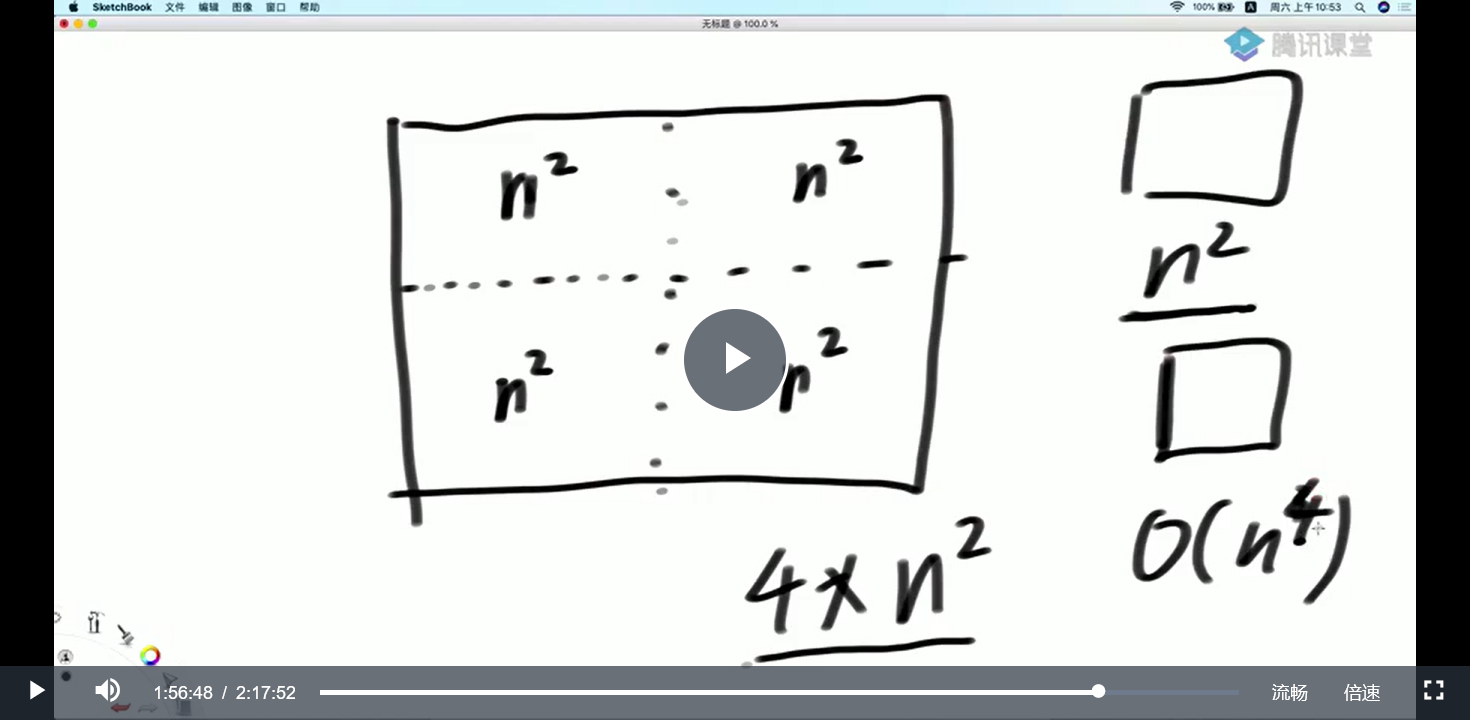 SketchBook 文件 编辑 图像 窗口 帮助 100% A 周六 上午10:53
无标题 @ 100.0 %
腾讯课堂
n² n²
n²
n² n²
O(n⁴)
4 × n²
1:56:48 / 2:17:52 流畅 倍速